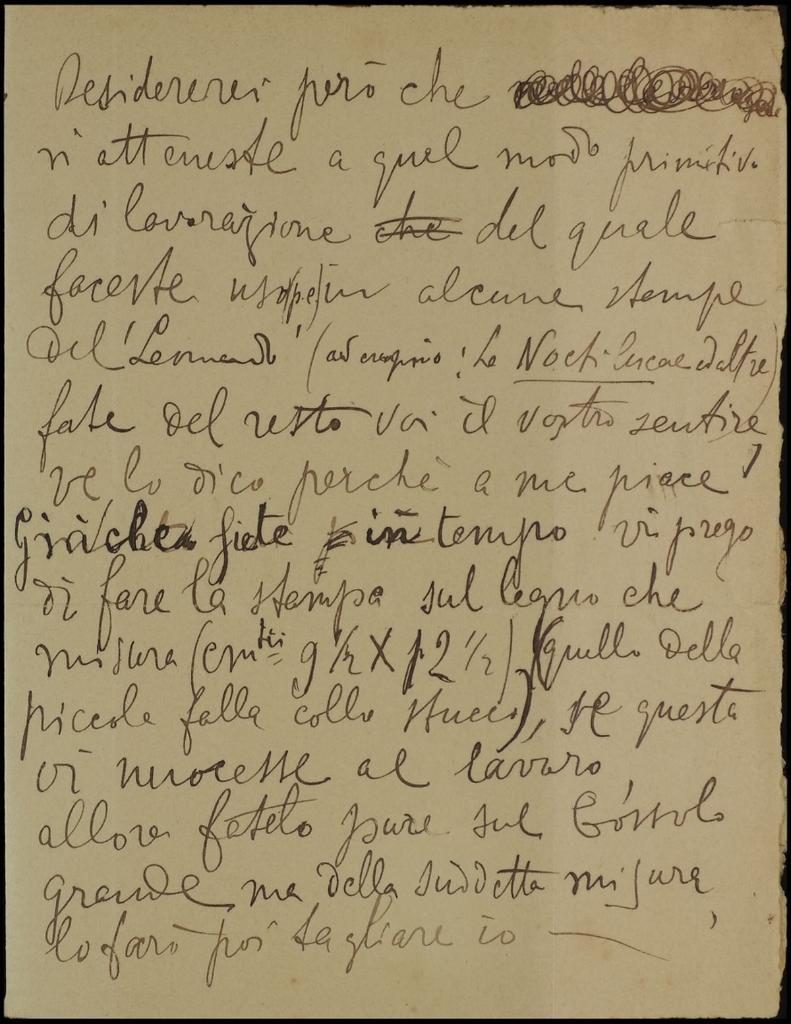 Desidererei però che
vi atteneste a quel modo primitivo
di lavorazione che del quale
faceste uso in alcune stampe
del 'Leonardo' (ad esempio: Le Noctilucae ed altre)
fate del resto voi il vostro sentire,
ve lo dico perchè a me piace
Già che siete in tempo vi prego
di fare la stampa sul legno che
misura (cm 9 1/2 X 12 1/2) (quello della
piccola falla collo stucco), se questa
vi nuocesse al lavoro
allora fatelo pure sul Bóssolo
grande ma della suddetta misura,
lo farò poi tagliare io —